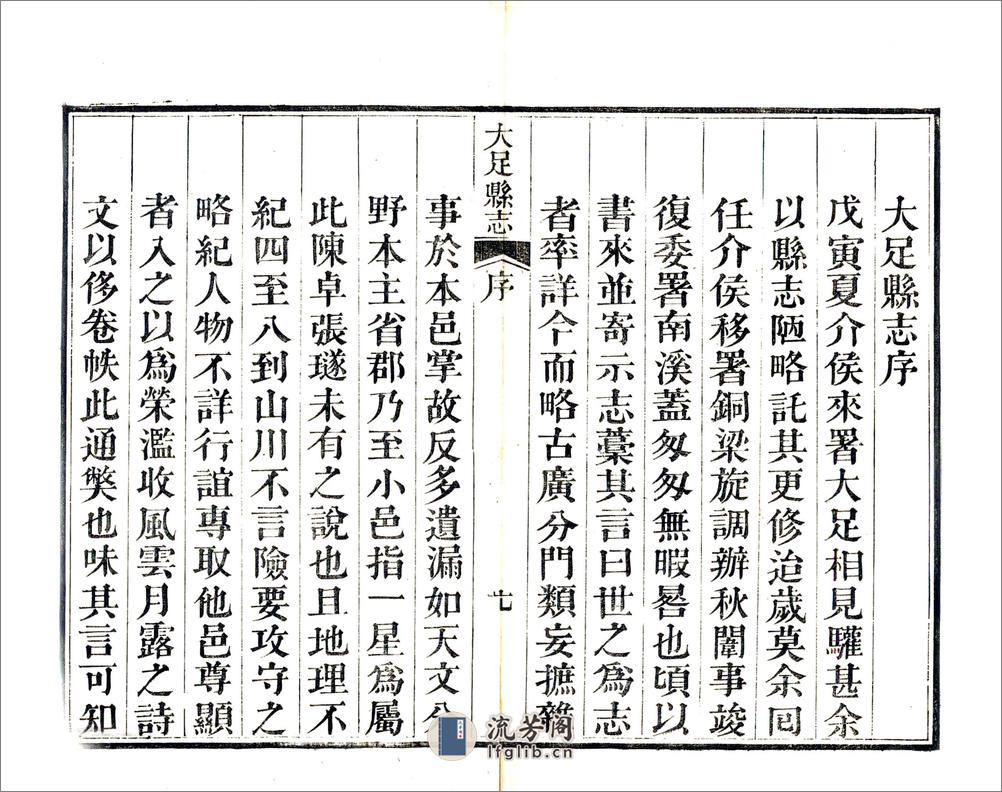 大足縣志序
戊寅夏介侯來署大足相見驩甚余
以縣志陋略託其更修治歲莫余囘
任介侯移署銅梁旋調辦秋闈事竣
復委署南溪蓋匆匆無暇晷也頃以
書來並寄示志藁其言曰世之為志
者率詳今而略古廣分門類妄摭雜
大足縣志
序
七
事於本邑掌故反多遺漏如天文分
野本主省郡乃至小邑指一星為屬
此陳卓張璲未有之說也且地理不
紀四至八到山川不言險要攻守之
略紀人物不詳行誼專取他邑尊顯
者入之以爲榮濫收風雲月露之詩
文以侈卷帙此通獘也味其言可知
流芳閣
lfglib.cn